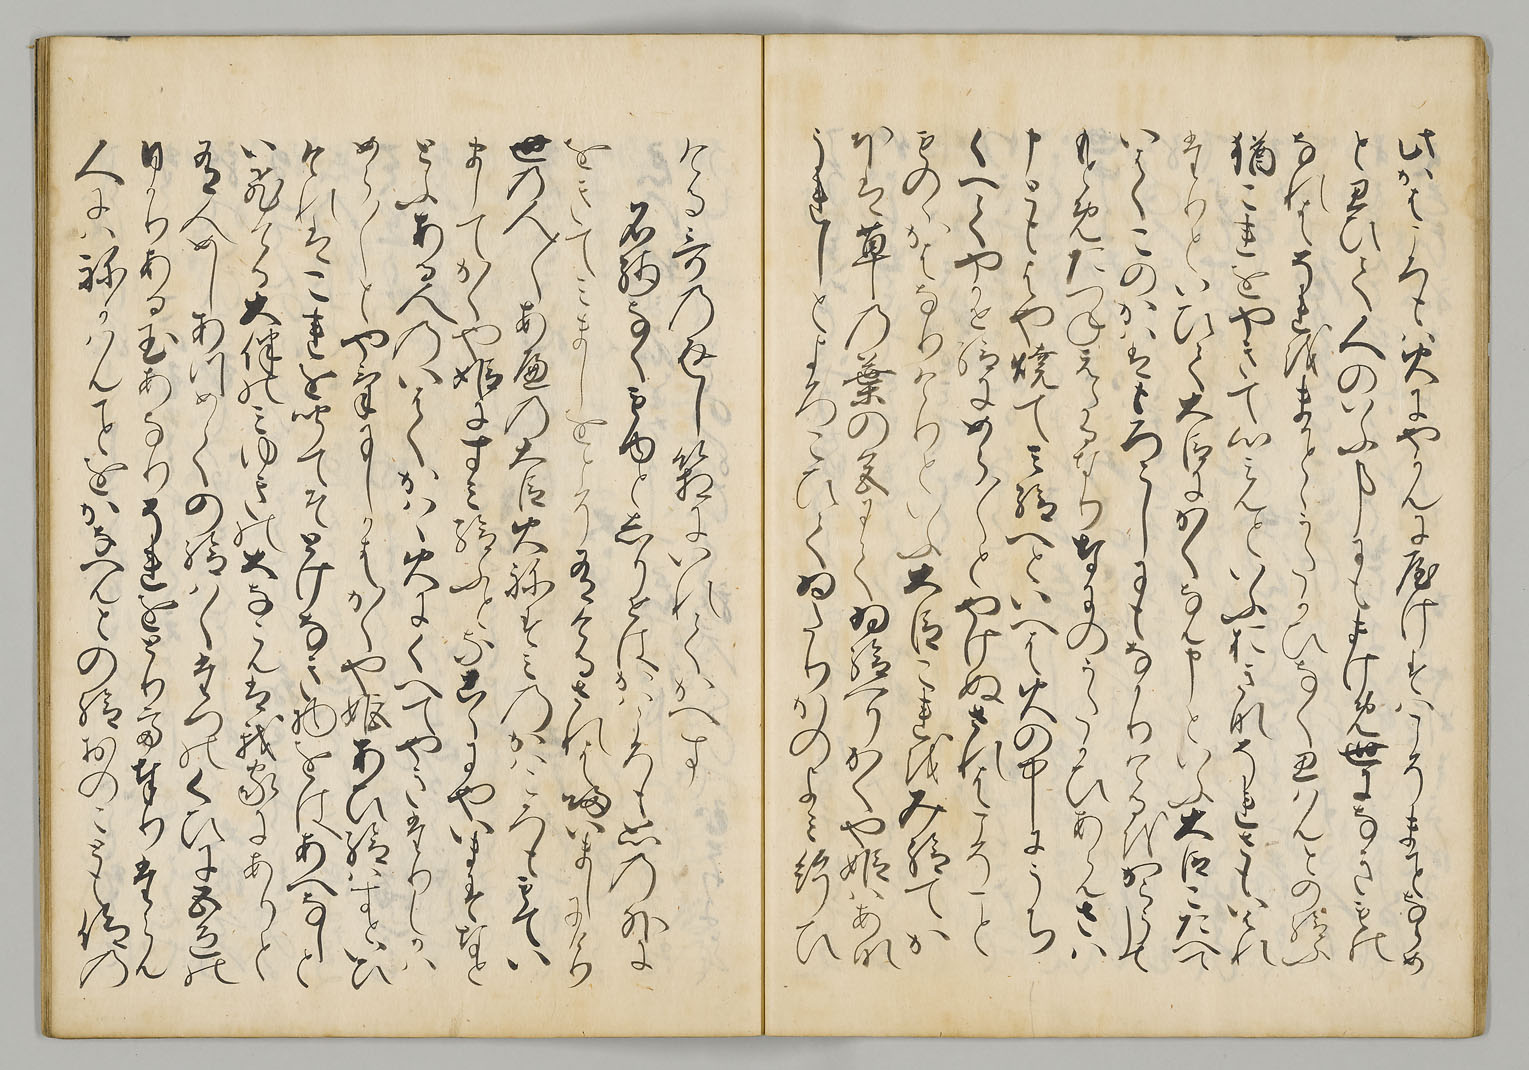 此かはころもは火にやかんに屋けすはこそまことならめ
と思ひて人のいふ事にもまけめ世になきもの
なれはそれをまことゝうたかひなく思はんとの給ふ
猶これをやきて心みんといふおきなそれさもいはれ
たりといひて大臣にかくなん申といふ大臣こたへて
いはくこのかはゝもろこしにもなかりけるをからうして
もとめたつねえたるなりなにのうたかひあらんさは
申ともはや焼て見給へといへは火の中にうち
くへてやかせ給にめらめらとやけぬされはこそこと
ものゝかはなりけりといふ大臣これをみ給てか
ほは草の葉の色にてゐ給へりかくや姫はあな
うれしとよろこひてゐたりかのよみ給ひ
ける哥の返し箱にいれてかへす
名残なくもゆとしりせはかはころも思の外に
をきてみましをとそ有けるされは帰いましにけり
世の人々あへの大臣火ねすみのかはころももてい
ましてかくや姫にすみ給ふとなこゝにやいますなと
とふある人のいはくかはゝ火にくへてやきたりしかは
めらめらとやけにしかはかくや姫あひ給はすといひ
けれはこれを聞てそとけなき物をはあへなしと
いひける大伴のみゆきの大なこんは我家にありと
有人めしあつめての給はくたつのくひに五色の
ひかりある玉あなりそれをとりて奉りたらん
人にはねかはんことをかなへんとの給おのことも仰の